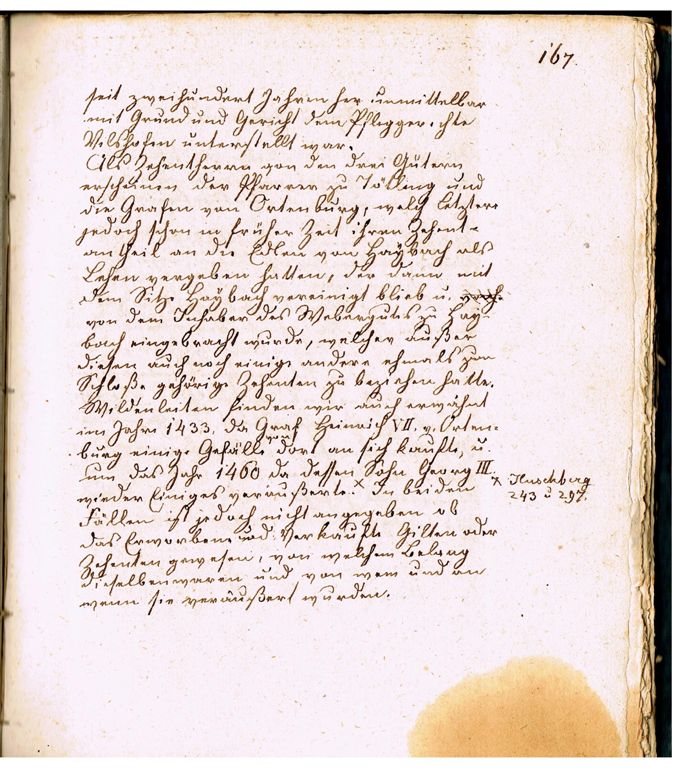 167.
seit zweihundert Jahren her unmittelbar
mit Grund und Gericht dem Pfleggerichte
Vilshofen unterstellt war.
Als Zehentherrn von den drei Gütern
erscheinen der Pfarrer zu Tötling und
die Grafen von Ortenburg, welch letztere
jedoch schon in früher Zeit ihren Zehent-
antheil an die Edlen von Haybach als
Lehen vergeben hatten, der dann mit
dem Sitze Haybach vereinigt blieb u.
von dem Inhaber des Webergutes zu Hay-
bach eingebracht wurde, welcher außer
diesen auch noch einige andere ehmals zum
Schloße gehörige Zehenten zu beziehen hatte.
Wildenleiten finden wir auch erwähnt
im Jahre 1433. da Graf Heinrich VII. v. Orten-
burg einige Gefälle dort an sich kaufte, u.
um das Jahr 1460 da dessen Sohn Georg III.
wieder Einiges veräußerte. x In beiden
x Huschberg
243 u 297.
Fällen ist jedoch nicht angegeben ob
das Erworbene und Verkaufte Gilten oder
Zehenten gewesen, von welchem Belang
dieselben waren und von wem und an
wenn sie veräußert wurden.